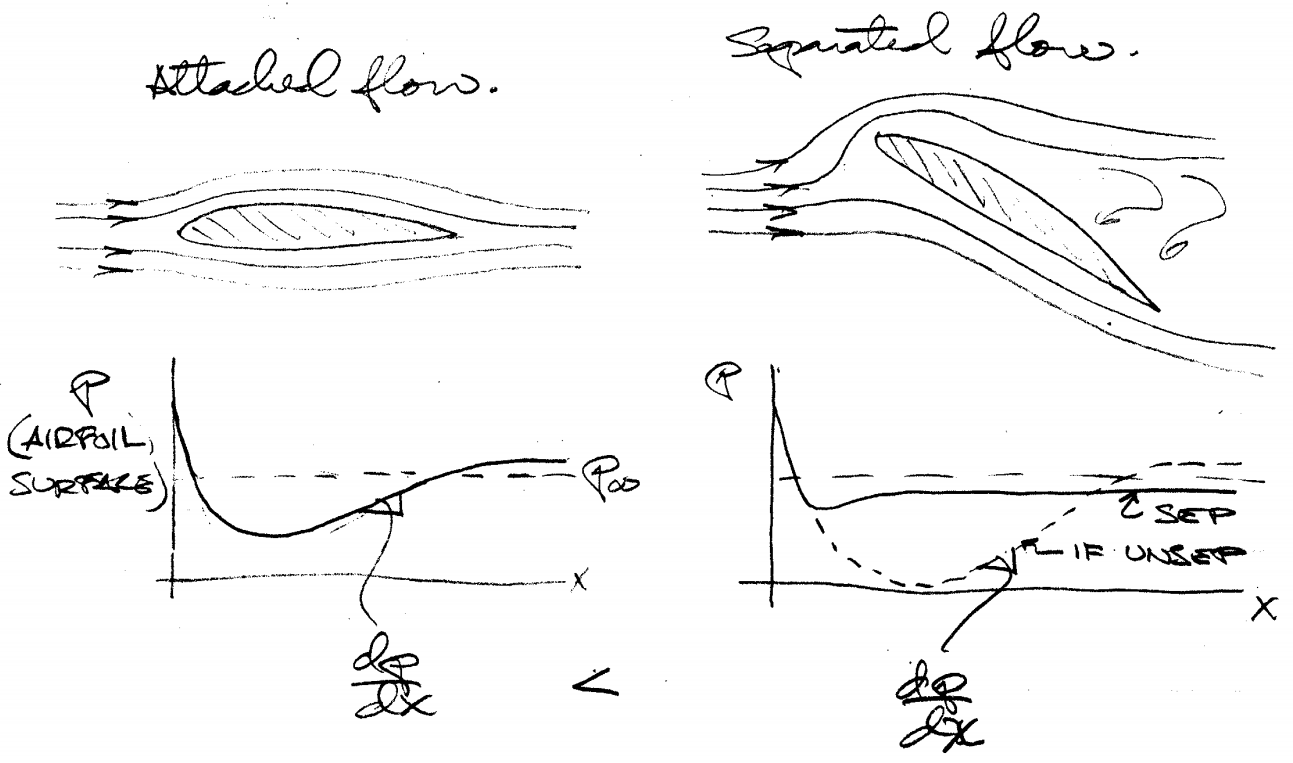 Attached flow.
Separated flow.
P
(AIRFOIL
SURFACE)
P∞
x
dp
dx
<
P
SEP
IF UNSEP
x
dp
dx